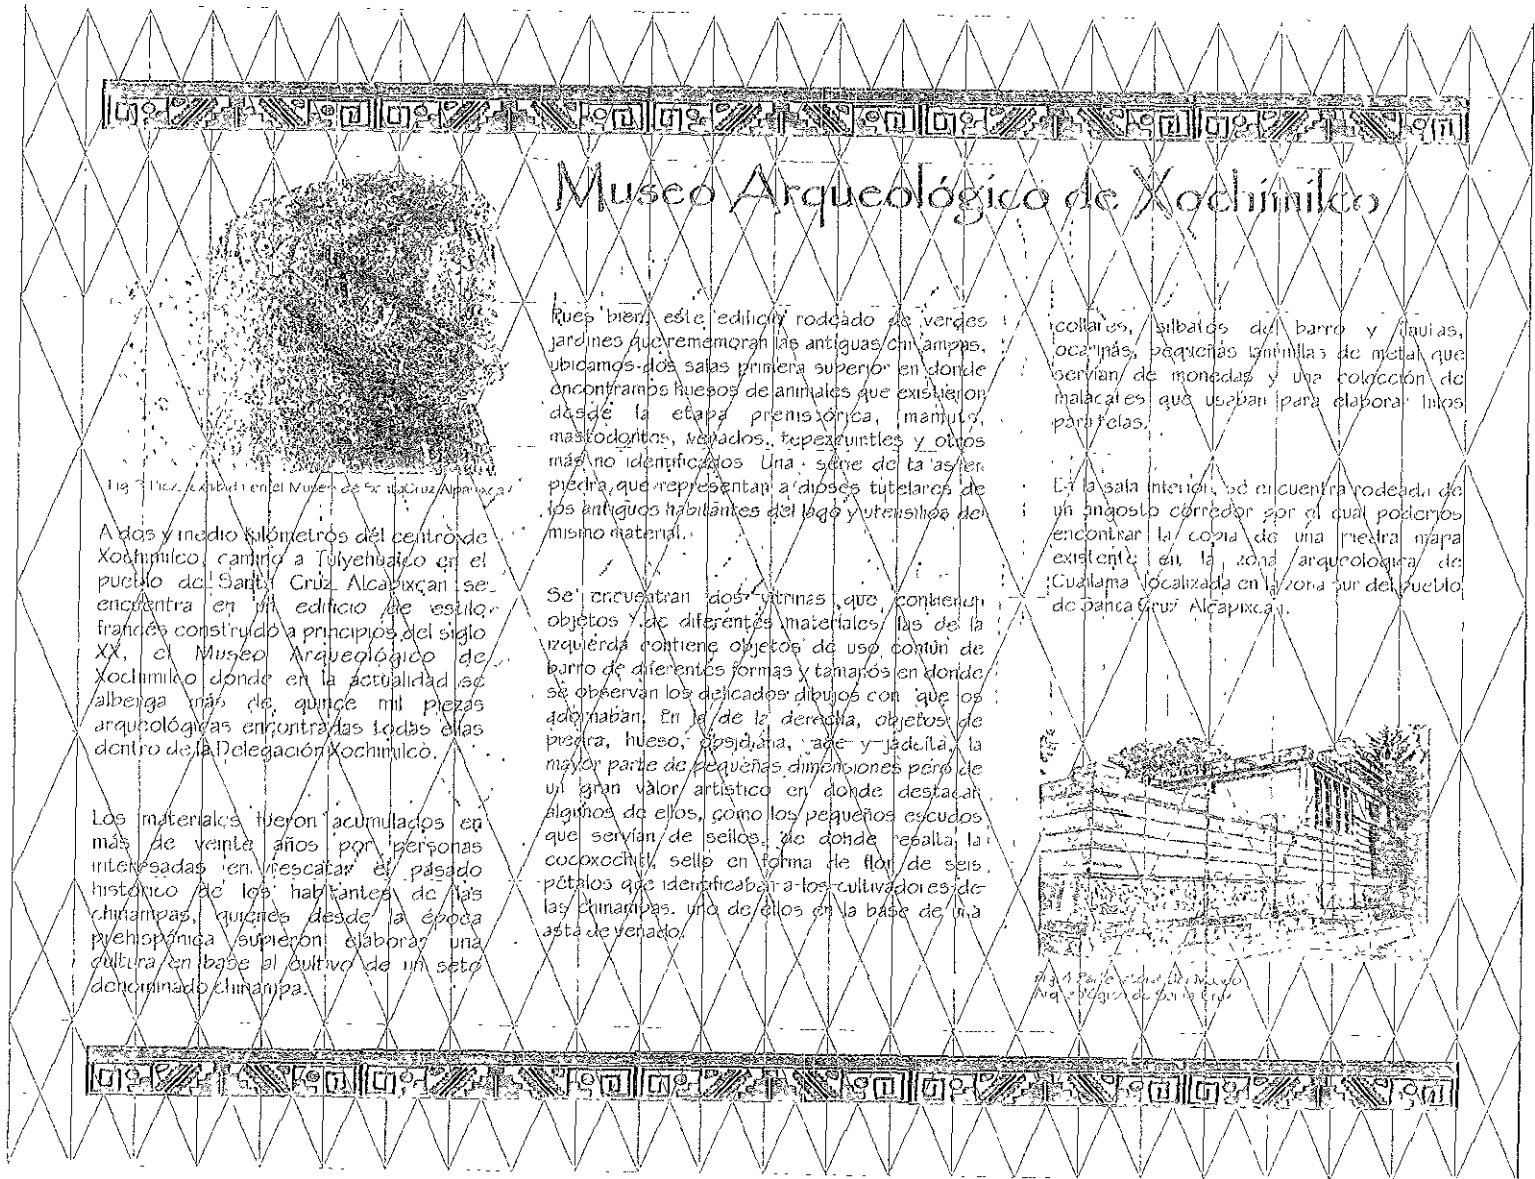 Museo Arqueológico de Xochimilco
en el Museo de Santa Cruz
A dos y medio kilómetros del centro de
Xochimilco, camino a Tulyehualco en el
pueblo de Santa Cruz Alcapixcan se
encuentra en un edificio de estilo
francés construido a principios del siglo
XX, el Museo Arqueológico de
Xochimilco donde en la actualidad se
alberga más de quince mil piezas
arqueológicas encontradas todas ellas
dentro de la Delegación Xochimilco.
Los materiales fueron acumulados en
más de veinte años por personas
interesadas en rescatar el pasado
histórico de los habitantes de las
chinampas, quienes desde la época
prehispánica supieron elaborar una
cultura en base al cultivo de un seto
denominado chinampa.
Pues bien, este edificio rodeado de verdes
jardines que rememoran las antiguas chinampas,
ubicamos dos salas primera superior en donde
encontramos huesos de animales que existieron
desde la etapa prehistórica, mamuts,
mastodontes, venados, tepezcuintles y otros
más no identificados. Una serie de tallas en
piedra que representan a dioses tutelares de
los antiguos habitantes del lago y utensilios del
mismo material.
Se encuentran dos vitrinas que contienen
objetos de diferentes materiales, las de la
izquierda contiene objetos de uso común de
barro de diferentes formas y tamaños en donde
se observan los delicados dibujos con que los
adornaban. En la de la derecha, objetos de
piedra, hueso, obsidiana, jade y jadeita, la
mayor parte de pequeñas dimensiones pero de
un gran valor artístico en donde destacan
algunos de ellos, como los pequeños escudos
que servían de sellos, de donde resalta la
cocoxochitl, sello en forma de flor de seis
pétalos que identificaban a los cultivadores de
las chinampas, uno de ellos en la base de una
asta de venado.
collares, silbatos del barro y flautas,
ocarinas, pequeñas laminillas de metal que
servían de monedas y una colección de
malacates que usaban para elaborar hilos
para telas.
En la sala interior, se encuentra rodeada de
un angosto corredor por el cual podemos
encontrar la copia de una piedra mapa
existente en la zona arqueologica de
Cuailama localizada en la zona sur del pueblo
de Santa Cruz Alcapixcan.
del Museo
Santa Cruz